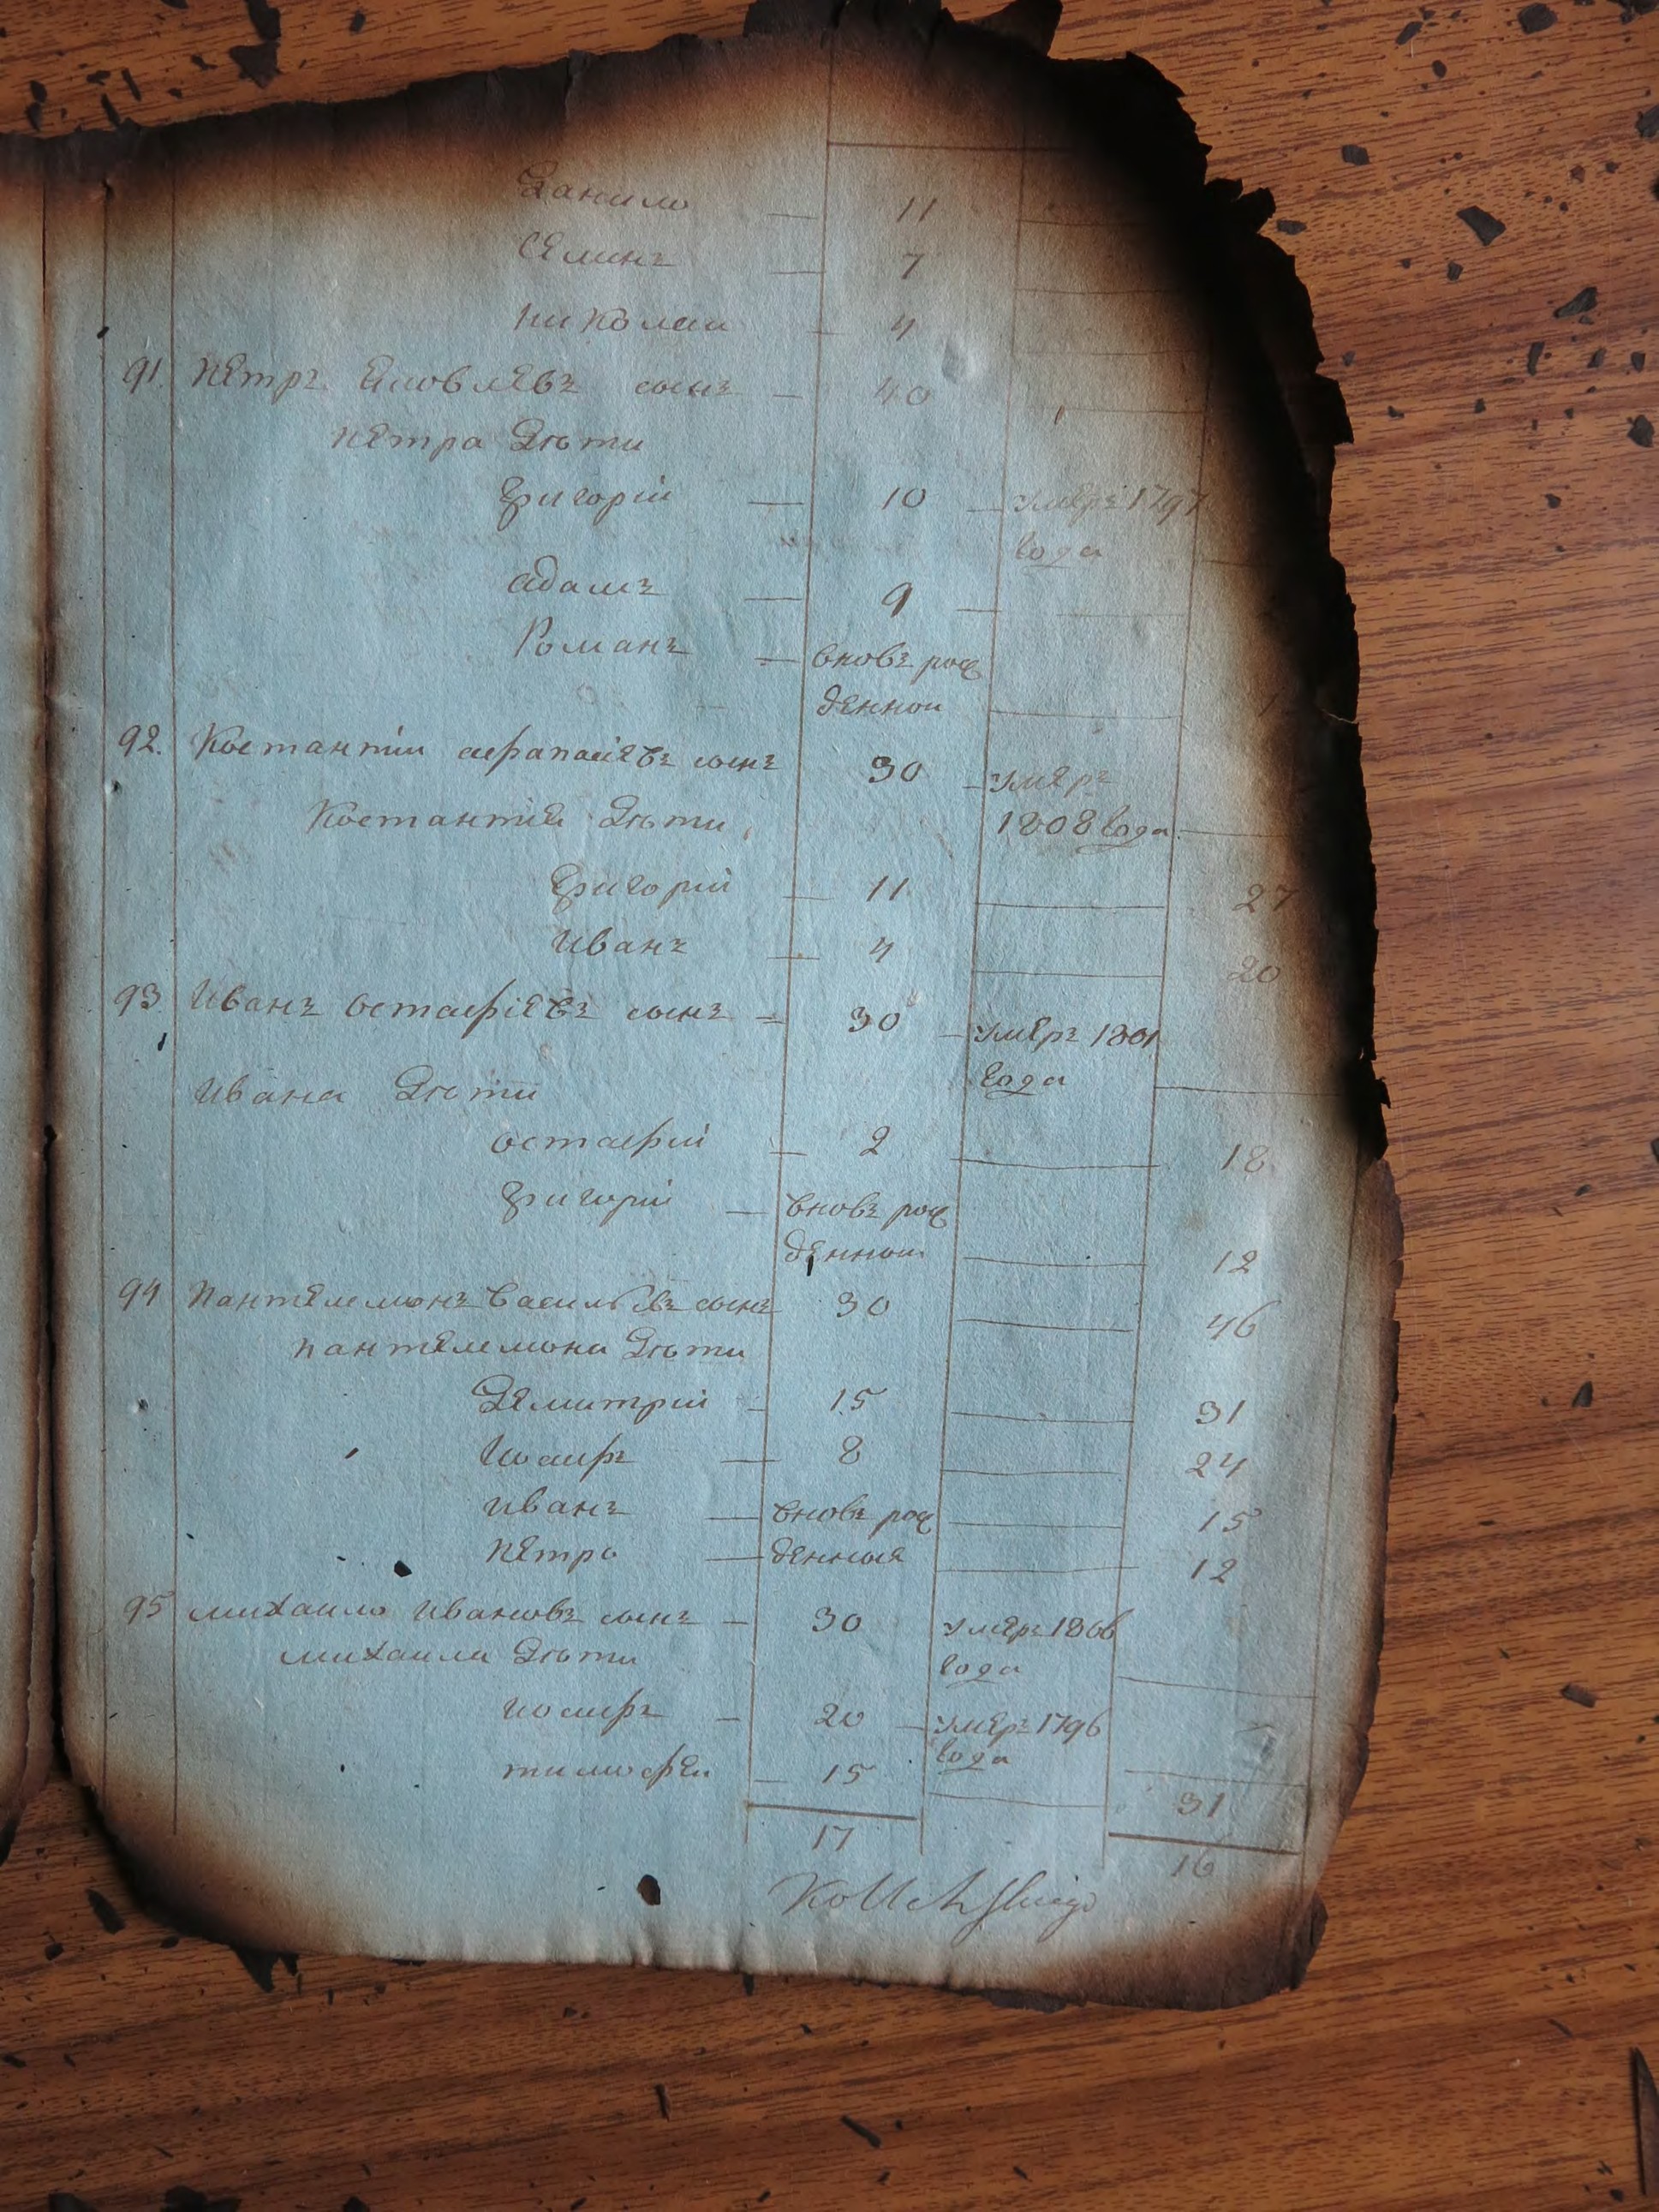 Данило — 11
Семинъ — 7
Николаи — 4
91. Петръ Яковлевъ сынъ — 40
Петра Дѣти
Григорій — 10 — умеръ 1797
года
Адамъ — 9 —
Романъ — вновъ рож
денnои
92. Костантіи Афанасіевъ сынъ 30 — умеръ
Костантія Дѣти 1808 года
Григорій — 11 27
Иванъ — 4 20
93 Иванъ Остафіевъ сынъ — 30 — умеръ 1801
Ивана Дѣти года
Остафій — 2 18
Григорій — вновъ рож
деннои 12
94 Пантелемонъ Васильевъ сынъ 30 46
Пантелемона Дѣти
Демитрій — 15 31
Иосифъ — 8 24
Иванъ — вновъ рож 15
Петро — денныя 12
95 Михаило Ивановъ сынъ — 30 умеръ 1806
Михаила Дѣти года
Иосифъ — 20 — умеръ 1796
года
Тимофеи — 15 31
17 16